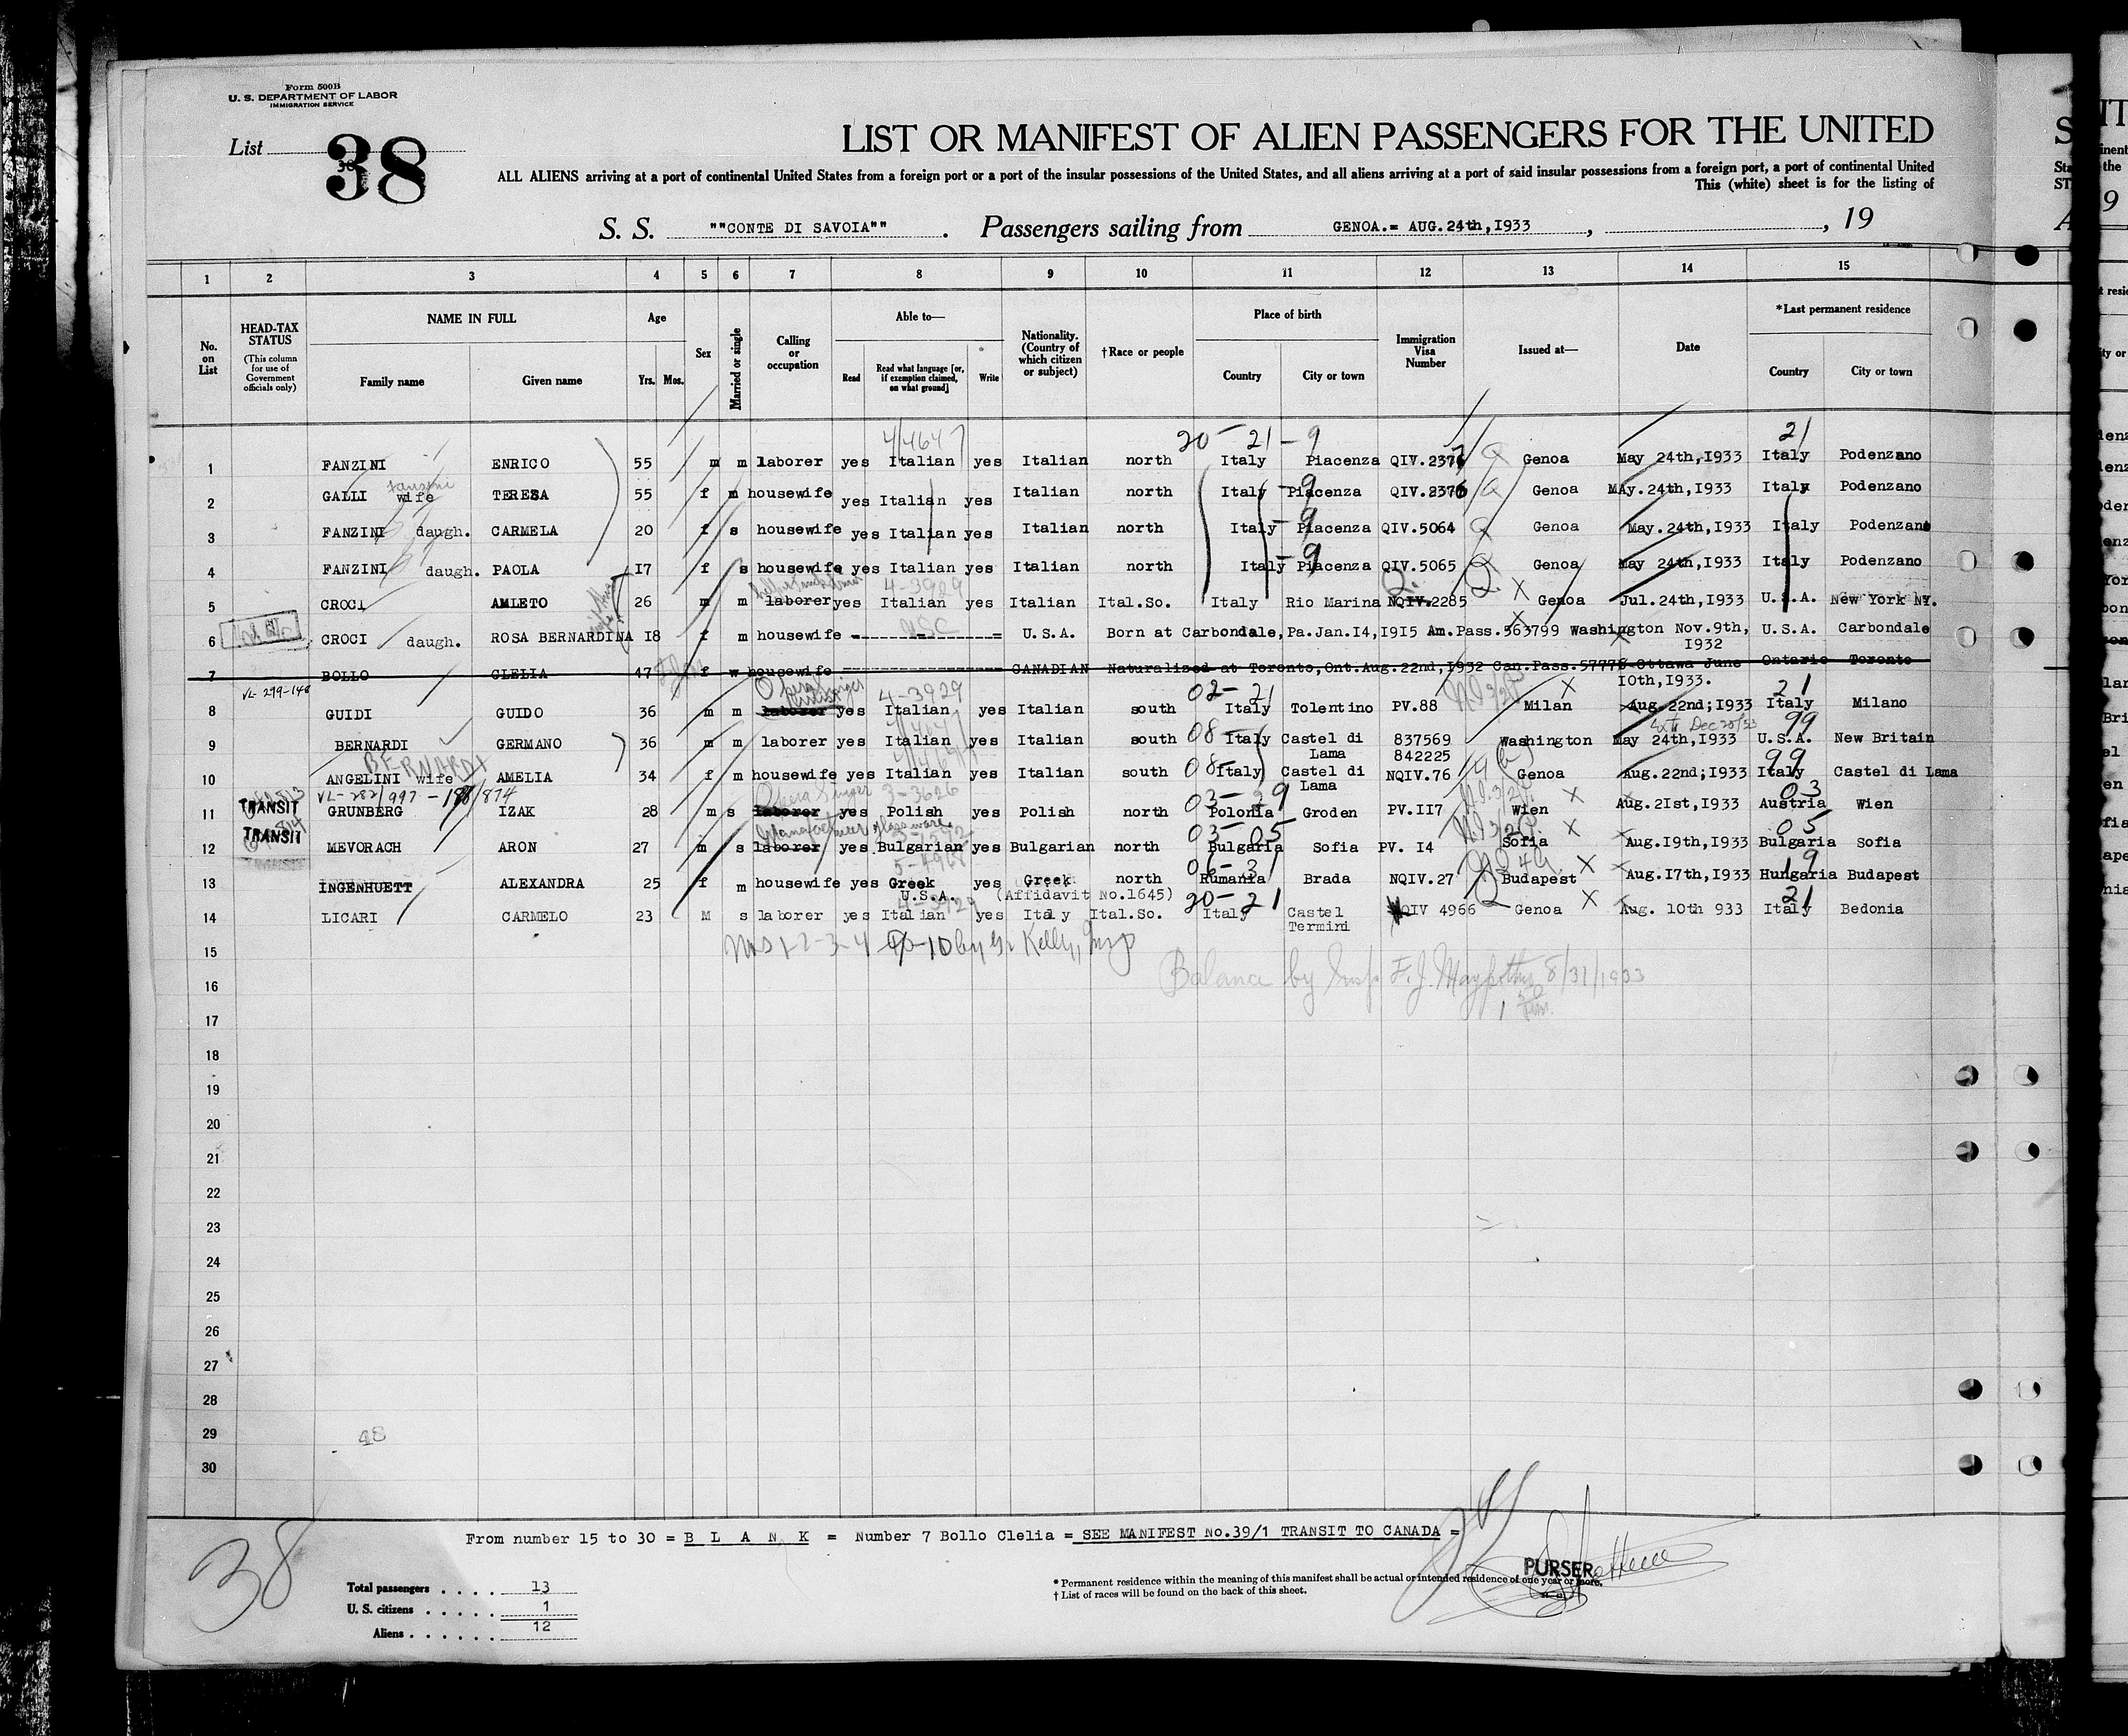 Form 500B
U. S. DEPARTMENT OF LABOR
IMMIGRATION SERVICE
List 38
LIST OR MANIFEST OF ALIEN PASSENGERS FOR THE UNITED
ALL ALIENS arriving at a port of continental United States from a foreign port or a port of the insular possessions of the United States, and all aliens arriving at a port of said insular possessions from a foreign port, a port of continental United
This (white) sheet is for the listing of
S. S. ""CONTE DI SAVOIA"" . Passengers sailing from GENOA.= AUG.24th,I933 , , 19
1 2 3 4 5 6 7 8 9 10 11 12 13 14 15
No. on List
HEAD-TAX STATUS (This column for use of Government officials only)
NAME IN FULL Family name Given name
Age Yrs. Mos.
Sex
Married or single
Calling or occupation
Able to— Read Read what language [or, if exemption claimed, on what ground] Write
Nationality. (Country of which citizen or subject)
†Race or people
Place of birth Country City or town
Immigration Visa Number
Issued at—
Date
*Last permanent residence Country City or town
4/4647 20 - 21 - 9 21
1 FANZINI ENRICO 55 m m laborer yes Italian yes Italian north Italy Piacenza QIV.2376 Genoa May 24th,I933 Italy Podenzano
2 GALLI wife TERESA 55 f m housewife yes Italian yes Italian north Italy Piacenza QIV.2376 Genoa MAy.24th,I933 Italy Podenzano
3 FANZINI daugh. CARMELA 20 f s housewife yes Italian yes Italian north Italy Piacenza QIV.5064 Genoa May.24th,I933 Italy Podenzano
4 FANZINI daugh. PAOLA I7 f s housewife yes Italian yes Italian north Italy Piacenza QIV.5065 Genoa May 24th,I933 Italy Podenzano
4-3929
5 CROCI AMLETO 26 m m laborer yes Italian yes Italian Ital.So. Italy Rio Marina NQIV.2285 Genoa Jul.24th,I933 U.S.A. New York NY.
USC
6 CROCI daugh. ROSA BERNARDINA I8 f m housewife U.S.A. Born at Carbondale,Pa.Jan.I4,I9I5 Am.Pass.563799 Washington Nov.9th, I932 U.S.A. Carbondale
7 BOLLO CLELIA 47 f w housewife CANADIAN Naturalized at Toronto,Ont.Aug.22nd,I932 Can.Pass.57778-Ottawa June IOth,I933. Ontario Toronto
Opera Singer 4-3929 02-21 21
8 GUIDI GUIDO 36 m m laborer yes Italian yes Italian south Italy Tolentino PV.88 Milan Aug.22nd;I933 Italy Milano
99
9 BERNARDI GERMANO 36 m m laborer yes Italian yes Italian south 08 - Italy Castel di Lama 837569 842225 Washington May 24th,I933 U.S.A. New Britain
BERNARDI 99
10 ANGELINI wife AMELIA 34 f m housewife yes Italian yes Italian south 08- Italy Castel di Lama NQIV.76 Genoa Aug.22nd;I933 Italy Castel di Lama
Opera Singer 3-3626 03-29 03
11 TRANSIT GRUNBERG IZAK 28 m s laborer yes Polish yes Polish north Polonia Groden PV.II7 Wien Aug.2Ist,I933 Austria Wien
03-05 05
12 TRANSIT MEVORACH ARON 27 m s laborer yes Bulgarian yes Bulgarian north Bulgaria Sofia PV. I4 Sofia Aug.I9th,I933 Bulgaria Sofia
06-31 19
13 INGENHUETT ALEXANDRA 25 f m housewife yes Greek yes Greek north Rumania Brada NQIV.27 Budapest Aug.I7th,I933 Hungaria Budapest
U.S.A. (Affidavit No.1645)
4-3929 20-21 21
14 LICARI CARMELO 23 M s laborer yes Italian yes Italy Ital.So. Italy Castel Termini QIV 4966 Genoa Aug. 10th 933 Italy Bedonia
15
Balance by Insp F.J. 8/31/1933
16
17
18
19
20
21
22
23
24
25
26
27
28
29
48
30
From number 15 to 30 = B L A N K = Number 7 Bollo Clelia = SEE MANIFEST No.39/1 TRANSIT TO CANADA =
38
PURSER
Total passengers . . . . 13
U. S. citizens . . . . . 1
Aliens . . . . . . 12
* Permanent residence within the meaning of this manifest shall be actual or intended residence of one year or more.
† List of races will be found on the back of this sheet.